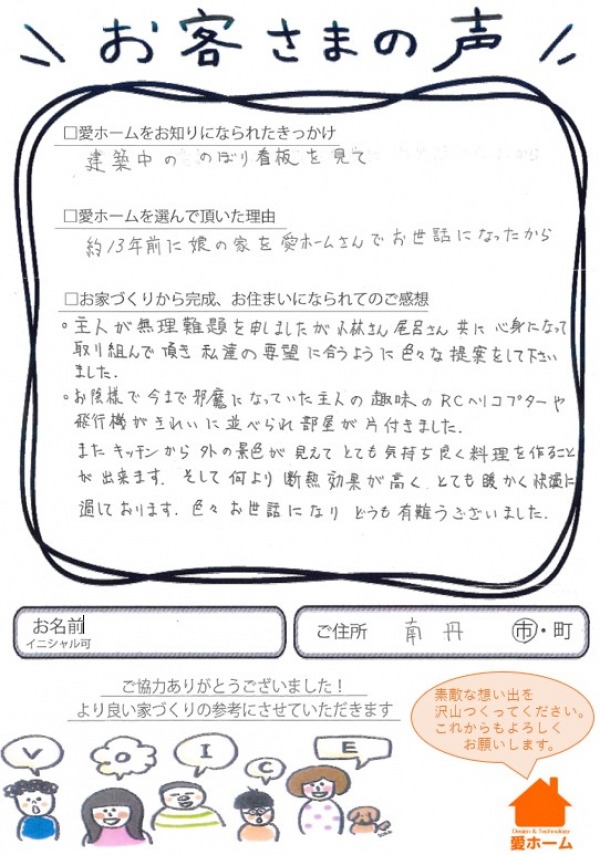 お客さまの声
□愛ホームをお知りになられたきっかけ
建築中の のぼり看板を見て
□愛ホームを選んで頂いた理由
約13年前に娘の家を愛ホームさんでお世話になったから
□お家づくりから完成、お住まいになられてのご感想
・主人が無理難題を申しましたが小林さん 尾呂さん 共に 心身になって
取り組んで頂き 私達の要望に合うように色々な提案をして下さい
ました.
・お陰様で今まで邪魔になっていた主人の趣味のRCヘリコプターや
飛行機がきれいに並べられ部屋が片付きました.
またキッチンから外の景色が見えてとても気持ち良く料理を作ること
が出来ます. そして何より断熱効果が高く とても暖かく快適に
過しております. 色々お世話になり どうも有難うございました.
お名前
イニシャル可
ご住所 南丹 市・町
ご協力ありがとうございました！
より良い家づくりの参考にさせていただきます
素敵な想い出を
沢山つくってください。
これからもよろしく
お願いします。
V O I C E
Design & Technology
愛ホーム